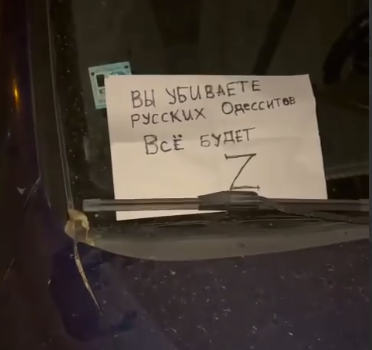 ВЫ УБИВАЕТЕ
РУССКИХ ОДЕССИТОВ
ВСЁ БУДЕТ
Z